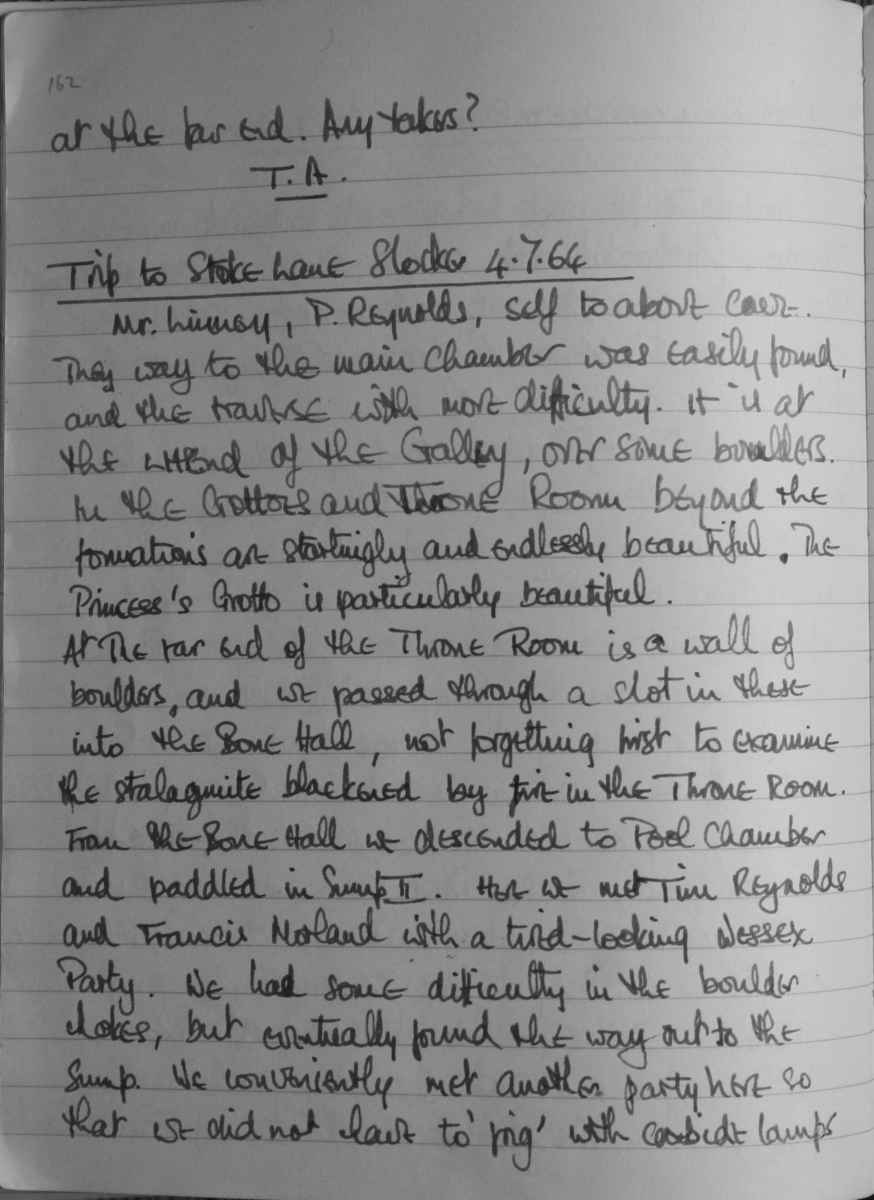 162
at the far end. Any takers?
T.A.
Trip to Stoke Lane Slocker 4.7.64
Mr. Linney, P. Reynolds, self to about
They way to the main chamber was easily found,
and the traverse with more difficulty. It is at
the end of the Gallery, over some boulders.
In the Grottoes and Throne Room beyond the
formations are startlingly and endlessly beautiful. The
Princess's Grotto is particularly beautiful.
At The far end of the Throne Room is a wall of
boulders, and we passed through a slot in these
into the Bone Hall, not forgetting first to examine
the stalagmite blackened by fire in the Throne Room.
From the Bone Hall we descended to Pool Chamber
and paddled in Sump II. Here we met Tim Reynolds
and Francis Morland with a tired-looking Wessex
Party. We had some difficulty in the boulder
chokes, but eventually found the way out to the
Sump. We conveniently met another party here so
that we did not have to 'pig' with carbide lamps